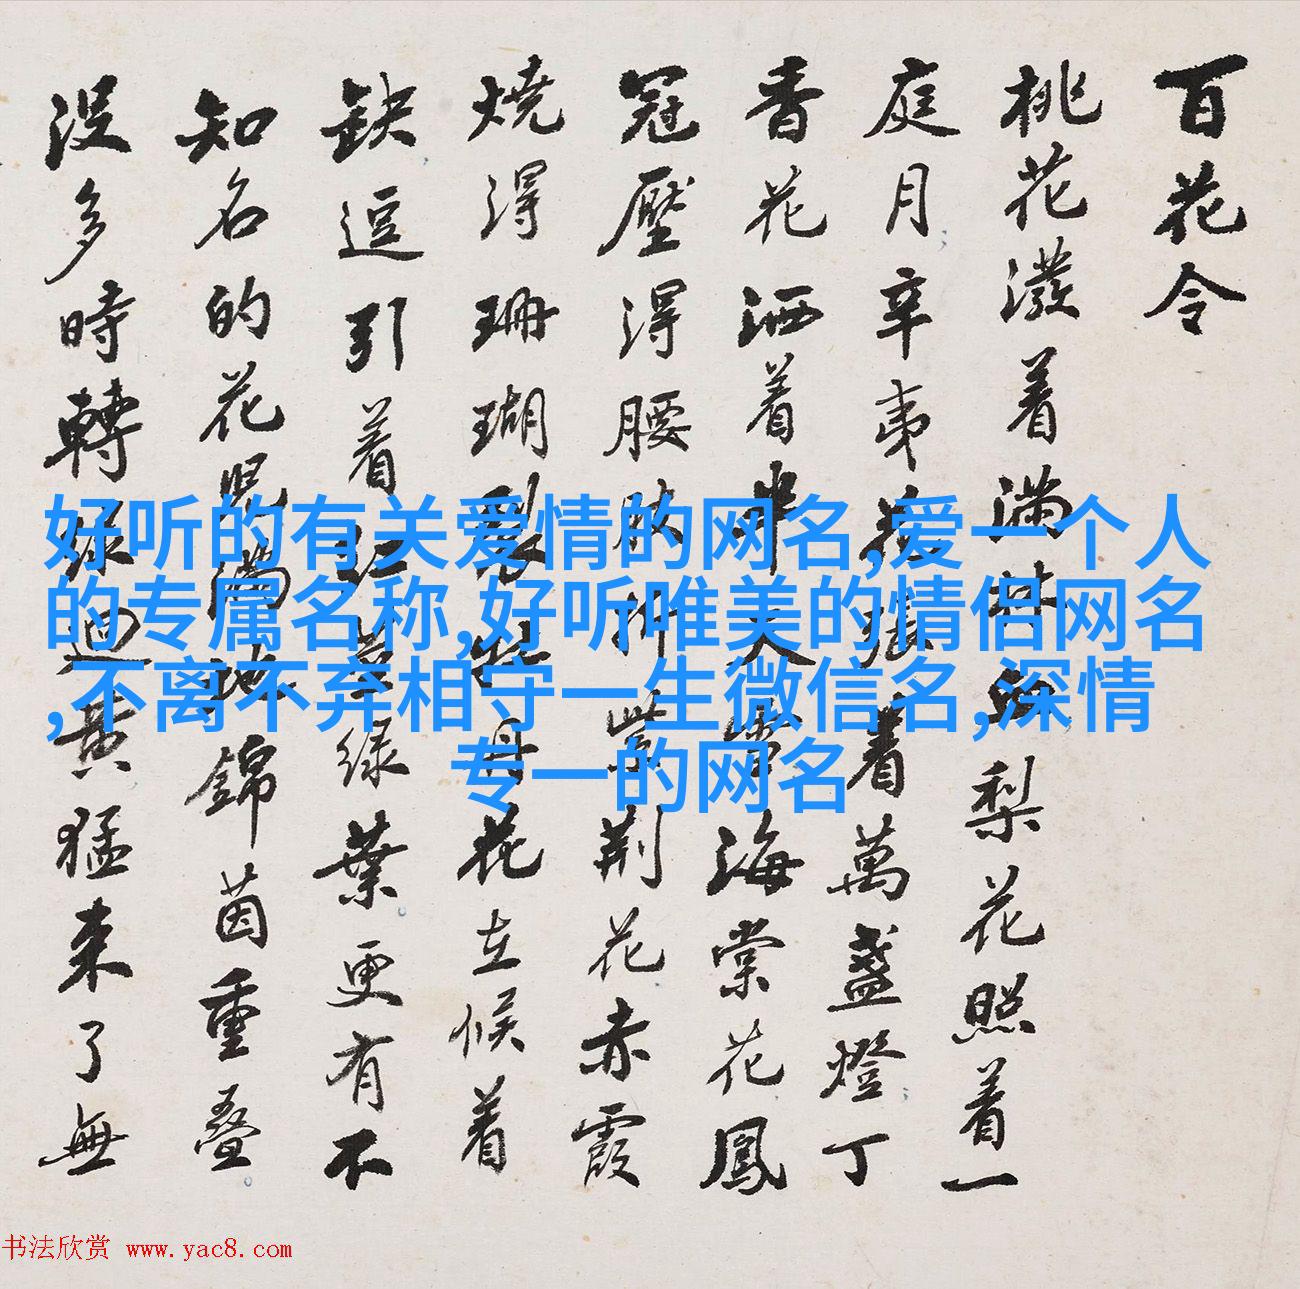 百花令
桃花潑着滿林血梨花照着一
庭月辛夷着萬盞燈丁
香花洒着半天海棠花鳳
冠壓得腰肢紫荆花赤霞
燒得珊瑚裂牡丹花立候着
缺逗引着綠葉更有不
知名的花兒滿地錦茵重疊
没多時轉綠迴黄猛来了無
好听的有关爱情的网名,爱一个人
的专属名称,好听唯美的情侣网名
,不离不弃相守一生微信名,深情
专一的网名
书法欣赏 www.yac8.com